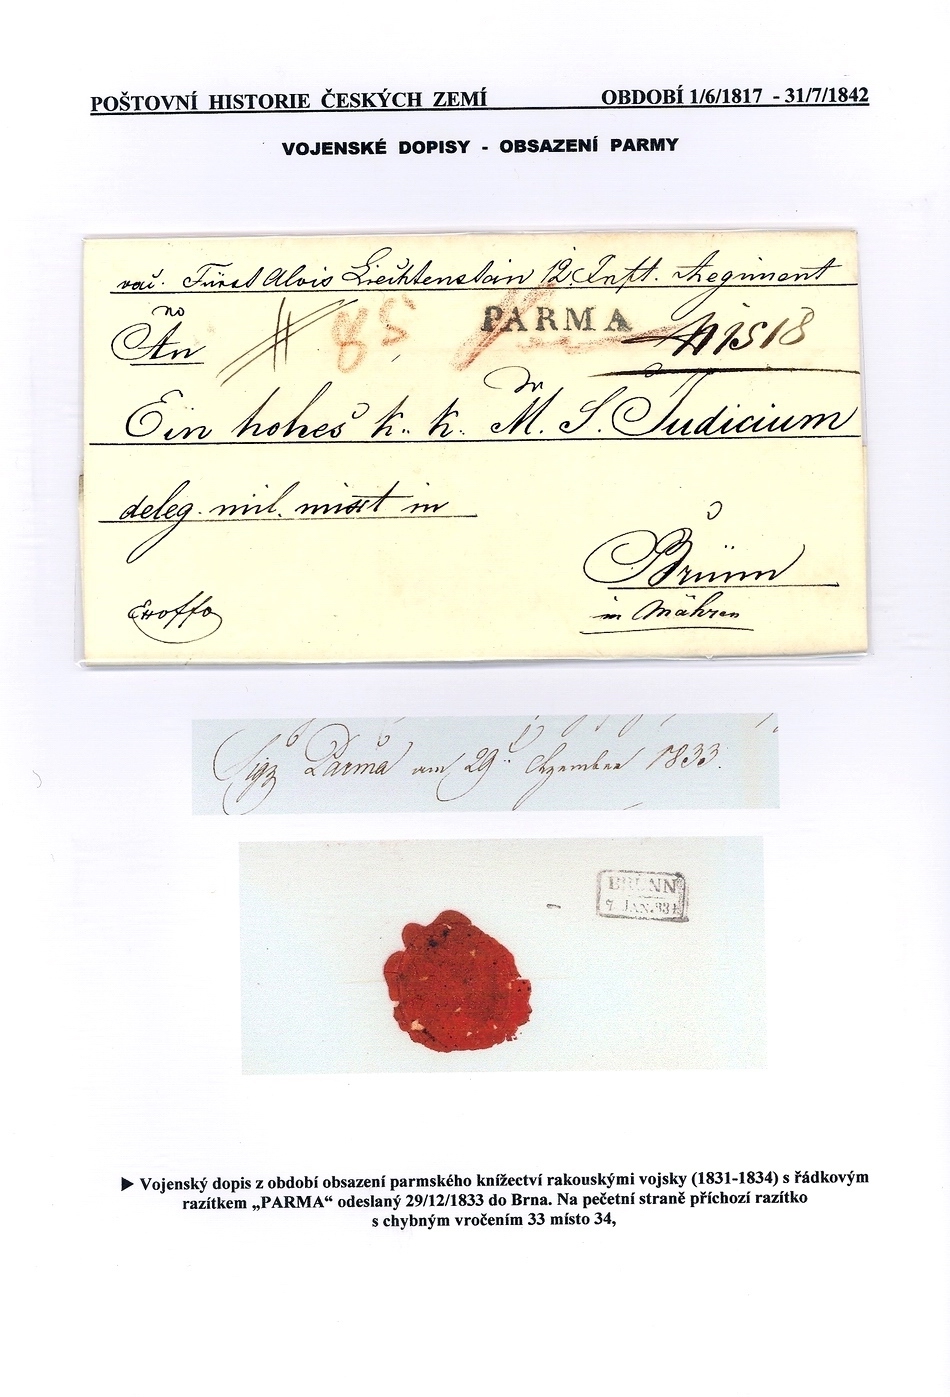 POŠTOVNÍ HISTORIE ČESKÝCH ZEMÍ OBDOBÍ 1/6/1817 - 31/7/1842
VOJENSKÉ DOPISY - OBSAZENÍ PARMY
Fürst Alois Liechtenstein 12. Inft. Regiment
An 85 PARMA
Ein hohes k. k. M. S. Judicium
deleg. mil. mixt in
Brünn
in Mähren
Exoffo
Sigz Parma am 29. Dezember 1833.
BRÜNN
7. JAN. 33
▶ Vojenský dopis z období obsazení parmského knížectví rakouskými vojsky (1831-1834) s řádkovým
razítkem „PARMA“ odeslaný 29/12/1833 do Brna. Na pečetní straně příchozí razítko
s chybným vročením 33 místo 34,